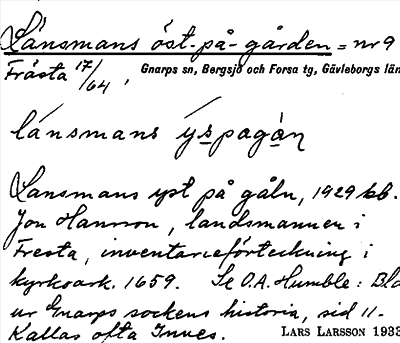 Länsmans öst-på-gården = nr 9
Frästa 17/64, Gnarps sn, Bergsjö och Forsa tg, Gävleborgs län
länsmans yspagàn
Lansmans yst på gåln, 1929 kb.
Jon Hansson, landsmannen i
Fresta, inventarieförteckning i
kyrkoark. 1659. Se O.A. Humble: Bla
ur Gnarps sockens historia, sid 11.
Kallas ofta Innes. LARS LARSSON 1933